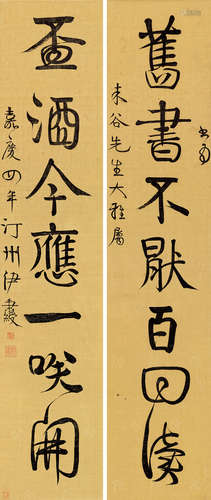 舊書不猒百回讀
未谷先生大雅屬
盃酒今應一咲開
嘉慶四年汀州伊秉綬